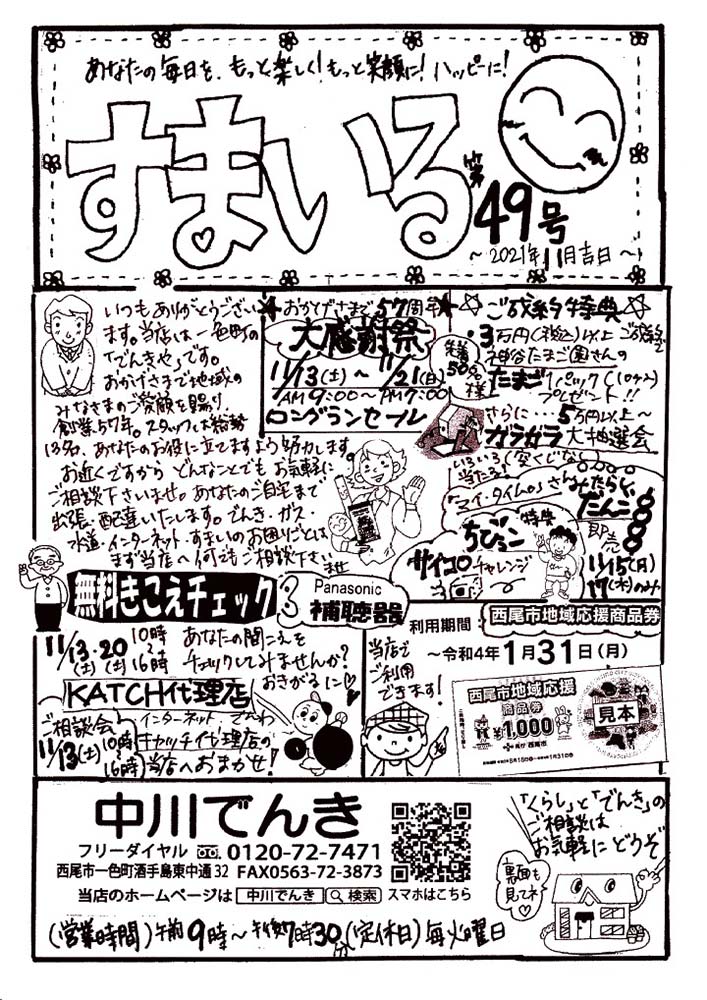 あなたの毎日を、もっと楽しく!もっと笑顔に!ハッピーに!
すまいる
第49号
~2021年11月吉日~
いつもありがとうござい
ます。当店は一色町の
「でんきや」です。
おかげさまで地域の
みなさまのご愛顧を賜り
創業57年。スタッフは総勢
13名、あなたのお役に立てますよう努力します。
お近くですから どんなことでも お気軽に
ご相談下さいませ。あなたのご自宅まで
出張・配達いたします。でんき・ガス・
水道・インターネット・すまいのお困りごとは
まず当店へ何でもご相談下さい
ませ
おかげさまで57周年
大感謝祭
11/13(土)~11/21(日)
AM9:00~PM7:00
ロングランセール
☆ご成約特典☆
・3万円(税込)以上ご成約で
先着50名様
神谷たまご園さんの
たまご1パック(10ケ入)
プレゼント!!
さらに…5万円以上~
ガラガラ大抽選会
いろいろ当たる!
(空くじなし)
「マイ・タイムの」さん
みたらし
だんご
即売
11/15(月)
17(水)のみ
ちびっこ特典
サイコロチャレンジ
無料きこえチェック
Panasonic
補聴器
11/13・20
(土)(土)
10時
~
16時
あなたの聞こえを
チェックしてみませんか?
おきがるに♡
KATCH代理店
ご相談会
11/13(土)
10時
~
16時
インターネット・でんわ
キャッチ代理店の
当店へおまかせ!
利用期間:
西尾市地域応援商品券
~令和4年1月31日(月)
当店で
ご利用
できます!
西尾市地域応援
商品券
¥1,000
見本
中川でんき
フリーダイヤル 0120-72-7471
西尾市一色町酒手島東中通32 FAX0563-72-3873
当店のホームページは 中川でんき 検索 スマホはこちら
(営業時間)午前9時~午後7時30分(定休日)毎火曜日
「くらし」と「でんき」の
ご相談は
お気軽に どうぞ
裏面も
見てネ♡